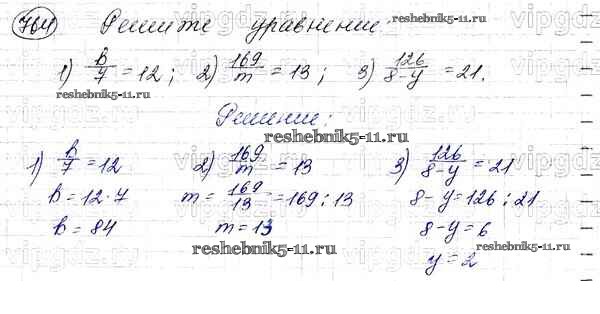 764 Решите уравнение:
reshebnik5-11.ru
1) b/7 = 12; 2) 169/m = 13; 3) 126/8-y = 21.
reshebnik5-11.ru
reshebnik5-11.ru
Решение:
reshebnik5-11.ru
1) b/7 = 12 2) 169/m = 13 3) 126/8-y = 21
b = 12 · 7 m = 169/13 = 169 : 13 8 - y = 126 : 21
b = 84 m = 13 8 - y = 6
reshebnik5-11.ru
reshebnik5-11.ru
y = 2